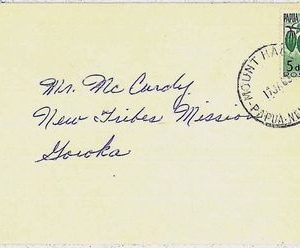 PAPUA
5d
MOUNT HA
PAPUA-NE
Mr. McCurdy
New Tribes Mission
Goroka